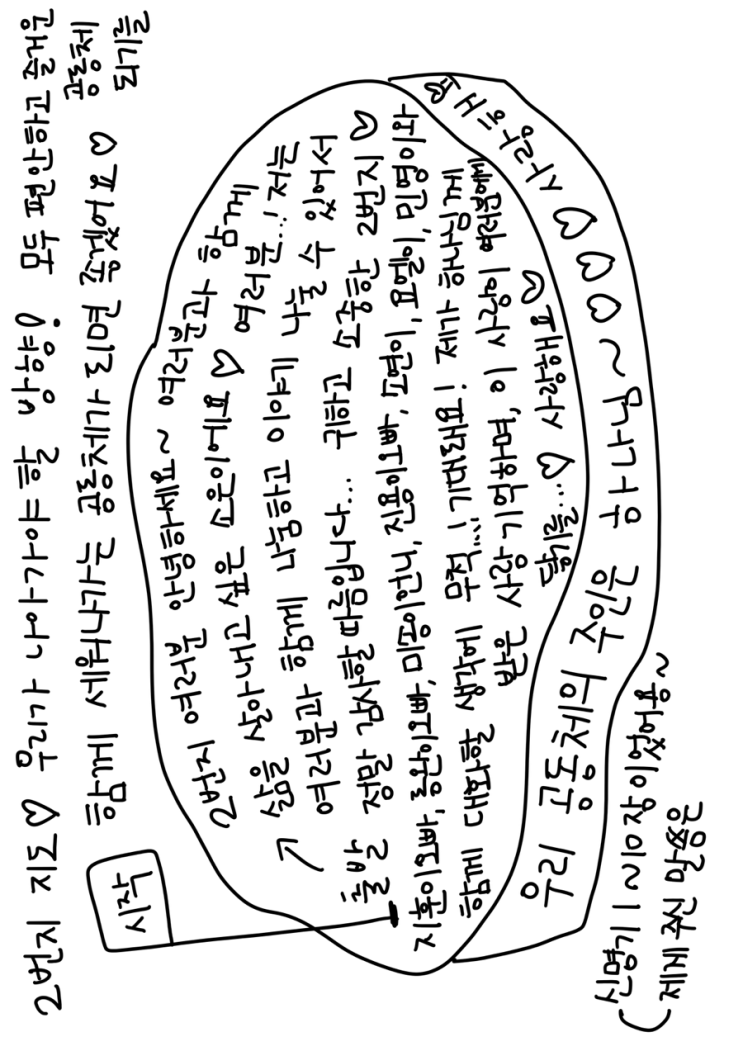 2번지 지도♡ 우리가 나아가야 할 방향! 모두 편안하고 즐거운
공동체
되기를
함께 세워나가는 공동체가 되면 좋겠어요♡
시작
출발
2번지 여러분 안녕하세요~ 여러분과 함께
삶을 살아내고 싶은 소운이에요♡ 여러분...! 저는
여러분과 함께 나눔하고 이야기 나눌 수 있어서
정말 감사할 따름입니다... 귀하고 소중한 2번지♡
지훈이오빠, 동완이오빠, 언니, 진용이오빠, 소연이, 요엘이, 민영이와
함께 대화할 생각에 무척...! 기대돼요! 제가 하나님께
받은 사랑 기억하며, 이 사랑이 여러분에게
닿기를...♡ 사랑해요♡
우리 공동체의 주인은 하나님~♡♡♡ 사랑해요
신명기 1~10장이었어용~
(제게 주신 말씀은